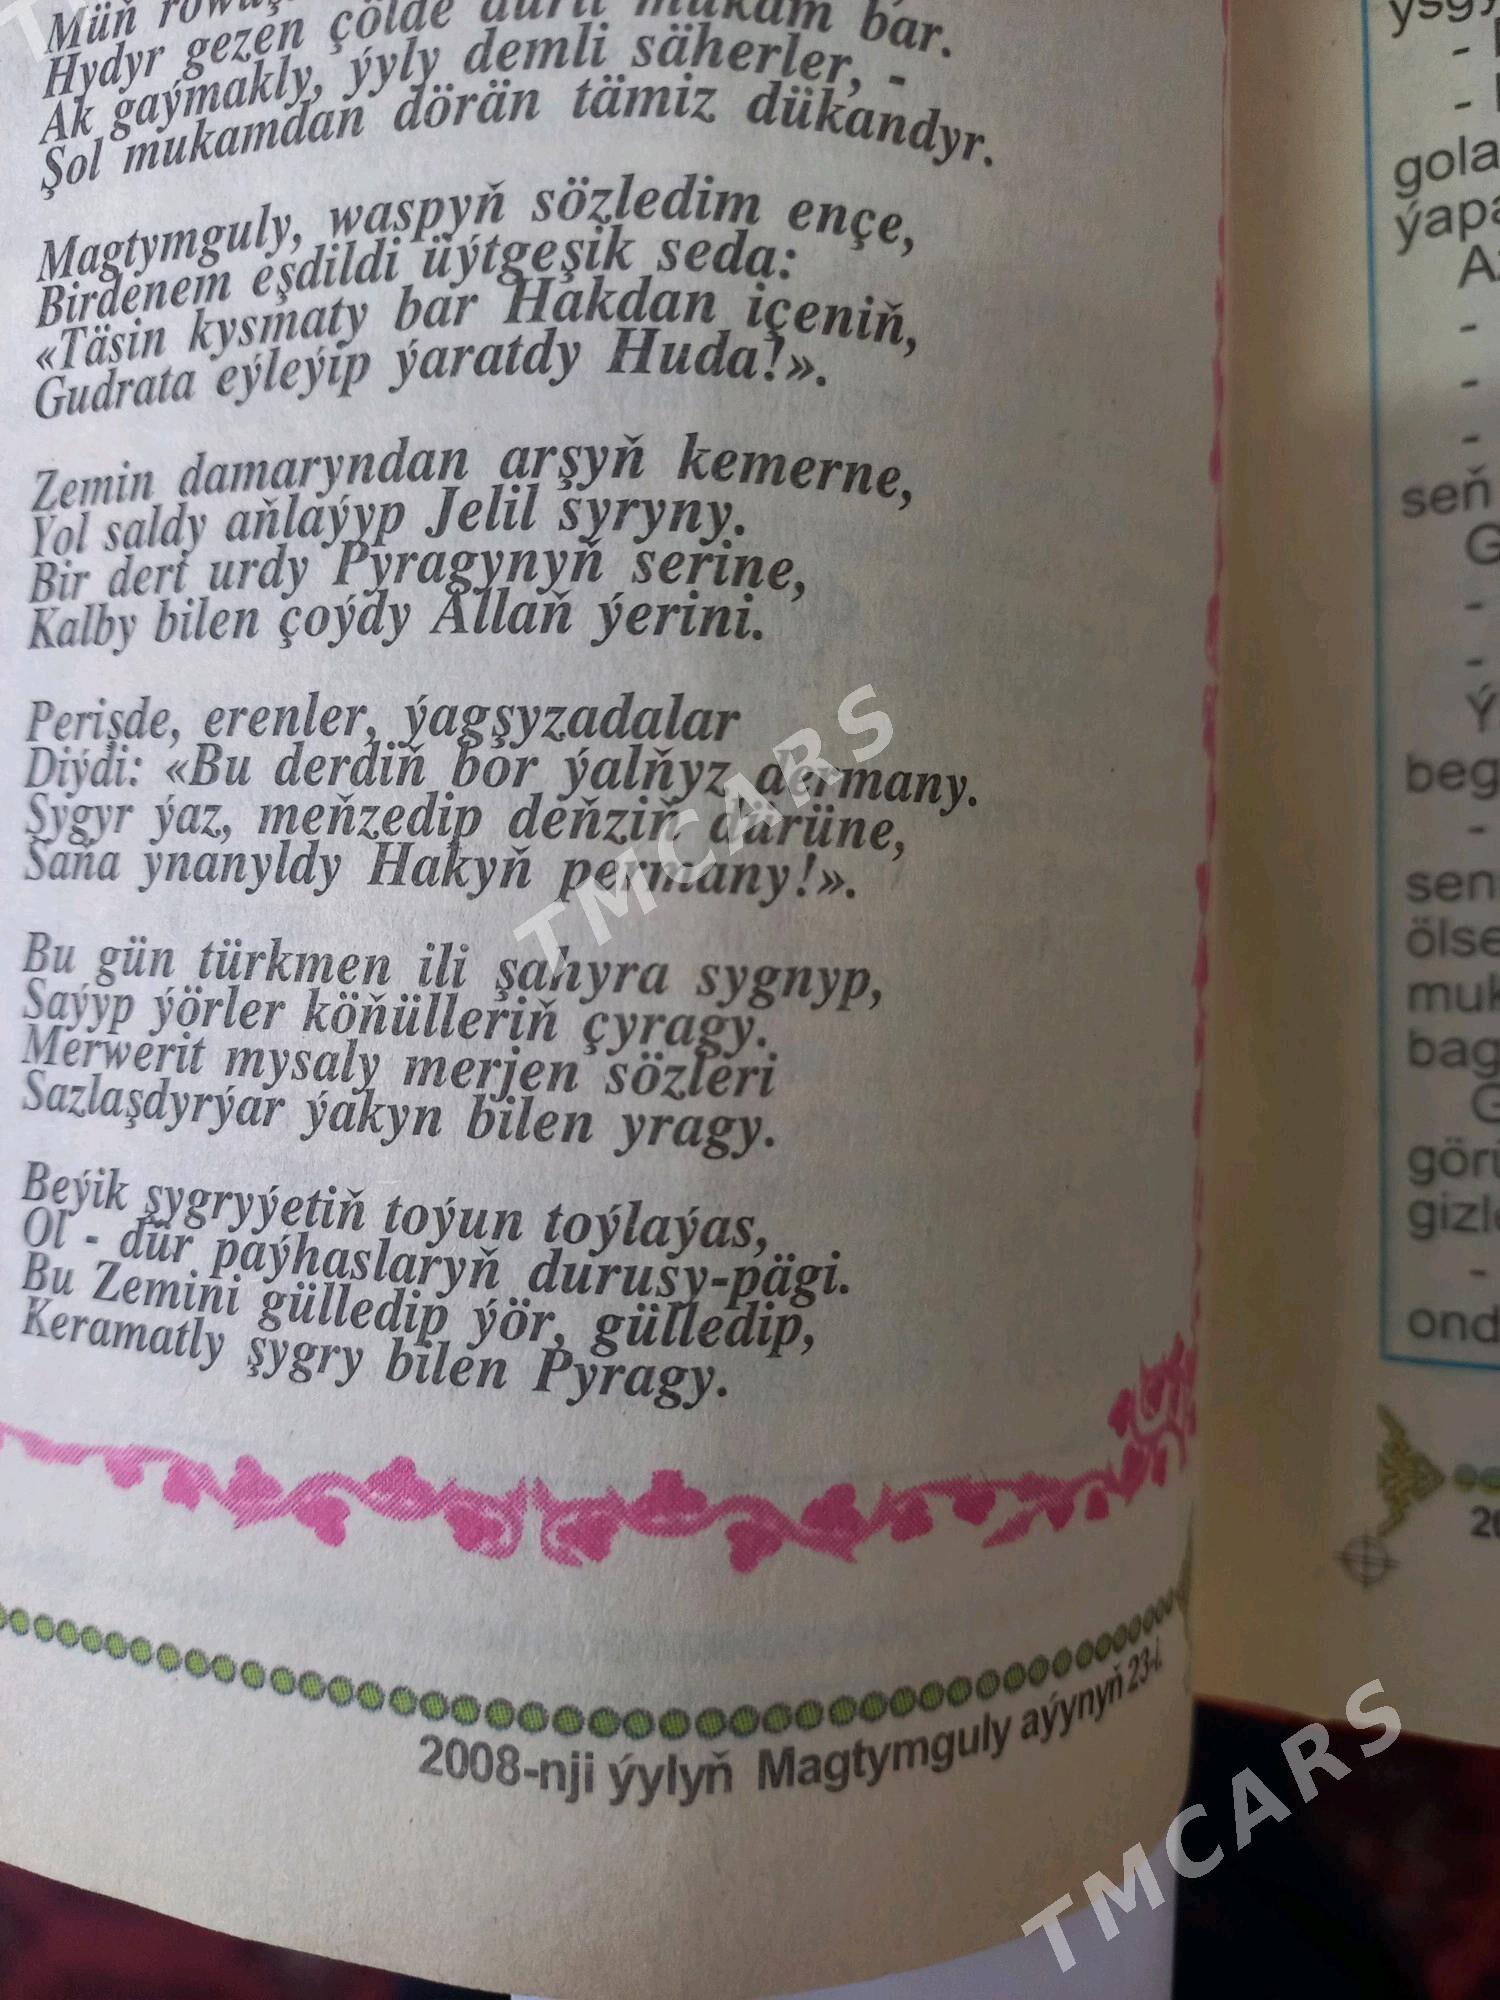 Müň
Hydyr gezen çölde dürli mukam bar.
Ak gaýmakly, ýyly demli säherler, -
Şol mukamdan dörän tämiz dükandyr.
Magtymguly, waspyň sözledim ençe,
Birdenem eşdildi üýtgeşik seda:
«Täsin kysmaty bar Hakdan içeniň,
Gudrata eýleýip ýaratdy Huda!».
Zemin damaryndan arşyň kemerne,
Yol saldy aňlaýyp Jelil syryny.
Bir dert urdy Pyragynyň serine,
Kalby bilen çoýdy Allaň ýerini.
Perişde, erenler, ýagşyzadalar
Diýdi: «Bu derdiň bor ýalňyz dermany.
Şygyr ýaz, meňzedip deňziň dürüne,
Saňa ynanyldy Hakyň permany!».
Bu gün türkmen ili şahyra sygnyp,
Saýyp ýörler köňülleriň çyragy.
Merwerit mysaly merjen sözleri
Sazlaşdyrýar ýakyn bilen yragy.
Beýik şygryýetiň toýun toýlaýas,
Ol - dür paýhaslaryň durusy-pägi.
Bu Zemini gülledip ýör, gülledip,
Keramatly şygry bilen Pyragy.
2008-nji ýylyň Magtymguly aýynyň 23-i.
gola
ýapa
seň
beg
sen
ölse
muk
bag
görü
gizle
ond
TMCARS
TMCARS